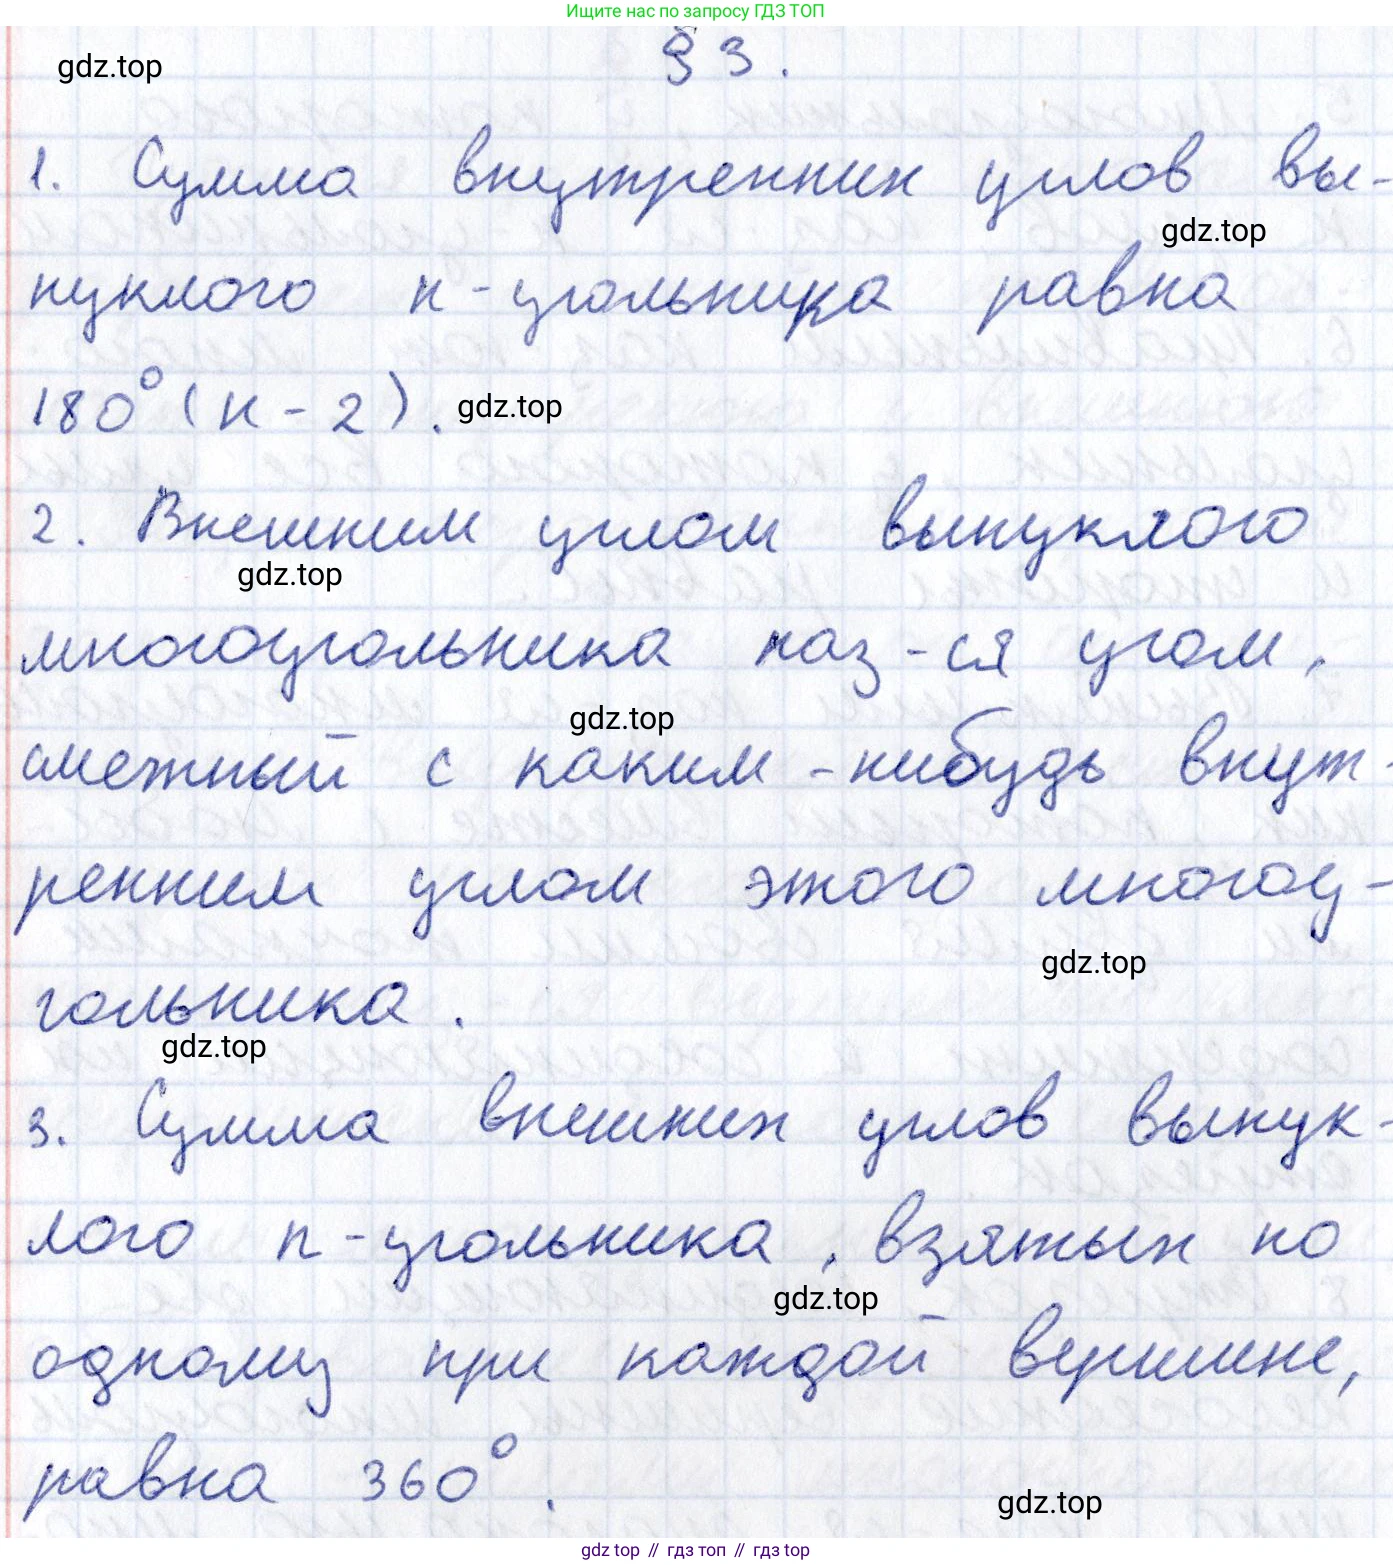 Ищите нас по запросу ГДЗ ТОП
§ 3.
gdz.top
1. Сумма внутренних углов вы-
gdz.top
пуклого n-угольника равна
180°(n-2).
gdz.top
2. Внешним углом выпуклого
gdz.top
многоугольника наз-ся угом,
gdz.top
смежный с каким-нибудь внут-
ренним углом этого многоу-
gdz.top
гольника.
gdz.top
3. Сумма внешних углов выпук-
лого n-угольника, взятых по
gdz.top
одному при каждой вершине,
равна 360°.
gdz.top
gdz top // гдз топ // гдз top